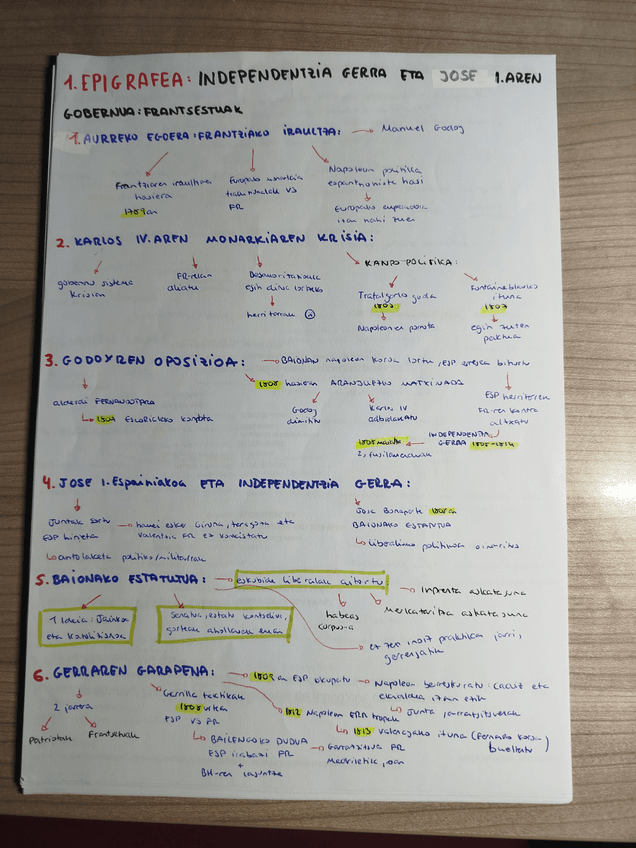 1. EPIGRAFEA: INDEPENDENTZIA GERRA ETA JOSE 1.AREN
GOBERNUA: FRANTSESTUAK
1. AURREKO EGOERA: FRANTZIAKO IRAULTZA: → Manuel Godoy
Frantziaren iraultzaren
hasiera
1789an
Europako
tradizionalak VS
FR
Napoleon politika
espantxionista hasi
Europako
izan nahi zuen
2. KARLOS IV.AREN MONARKIAREN KRISIA:
gobernu sistema
krisian
FR-rekin
aliatu
egin diru lortzeko
herritarrak
KANPO POLITIKA:
Trafalgarko guda
1805
Napoleonen porrota
Fontainebleauko
ituna
1807
egin zuten
paktua
3. GODOYREN OPOSIZIOA: → BAIONAN napoleon koroa lortu, ESP erregea bihurtu
alderdi FERNANDOTARRA
↳ 1807 ESCORIALEKO konplota
1808 hasieran ARANJUEZKO MATXINADA
Godoy
dimititu
Karlos IV
abdikatu
ESP herritarren
FR-ren kontra
altxatu
INDEPENDENTZIA
GERRA 1808-1814
2, fusilamenduak
4. JOSE 1. Espainiakoa ETA INDEPENDENTZIA GERRA:
Juntak sortu
ESP hirietan
→ hauei esker Girona, taragona eta
Valentzia FR ez konkistatu
↳ antolaketa politiko/militarrak
Jose Bonaparte 1808an
BAIONAKO ESTATUTUA
↳ liberalismo politikoan oinarritu
5. BAIONAKO ESTATUTUA: → eskubide liberalak aitortu
→ Inprenta askatasuna
Merkataritza askatasuna
habeas
corpus-a
ez zen inoiz praktikan jarri,
gerrengatik
1 Ideia: Jainkoa
eta katolizismoa
Senatua, estatu kontseilua,
gorteak aholkuak eman
6. GERRAREN GARAPENA:
2 jarrera
Patriotak
Frantsestuak
Gerrilla taktikak
1808 urtean
ESP VS FR
↳ BAILENGO GUDUA
ESP irabazi FR
+
BH-ren laguntza
→ Garaitzitua FR
Madriletik joan
ESP okupatu → Napoleon berreskuratu: Cadiz eta
ekialdea izan ezik
↳ Junta
1812 Napoleon ERR tropak
↳ 1813 Valençayko ituna (Fernando koroa
bueltatu)